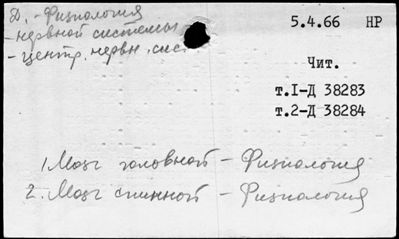 Д. - Физиология
- нервной системы
- центр. нервн. сист
5.4.66 НР
Чит.
т.I-Д 38283
т.2-Д 38284
1. Мозг головной - Физиология
2. Мозг спинной - Физиология